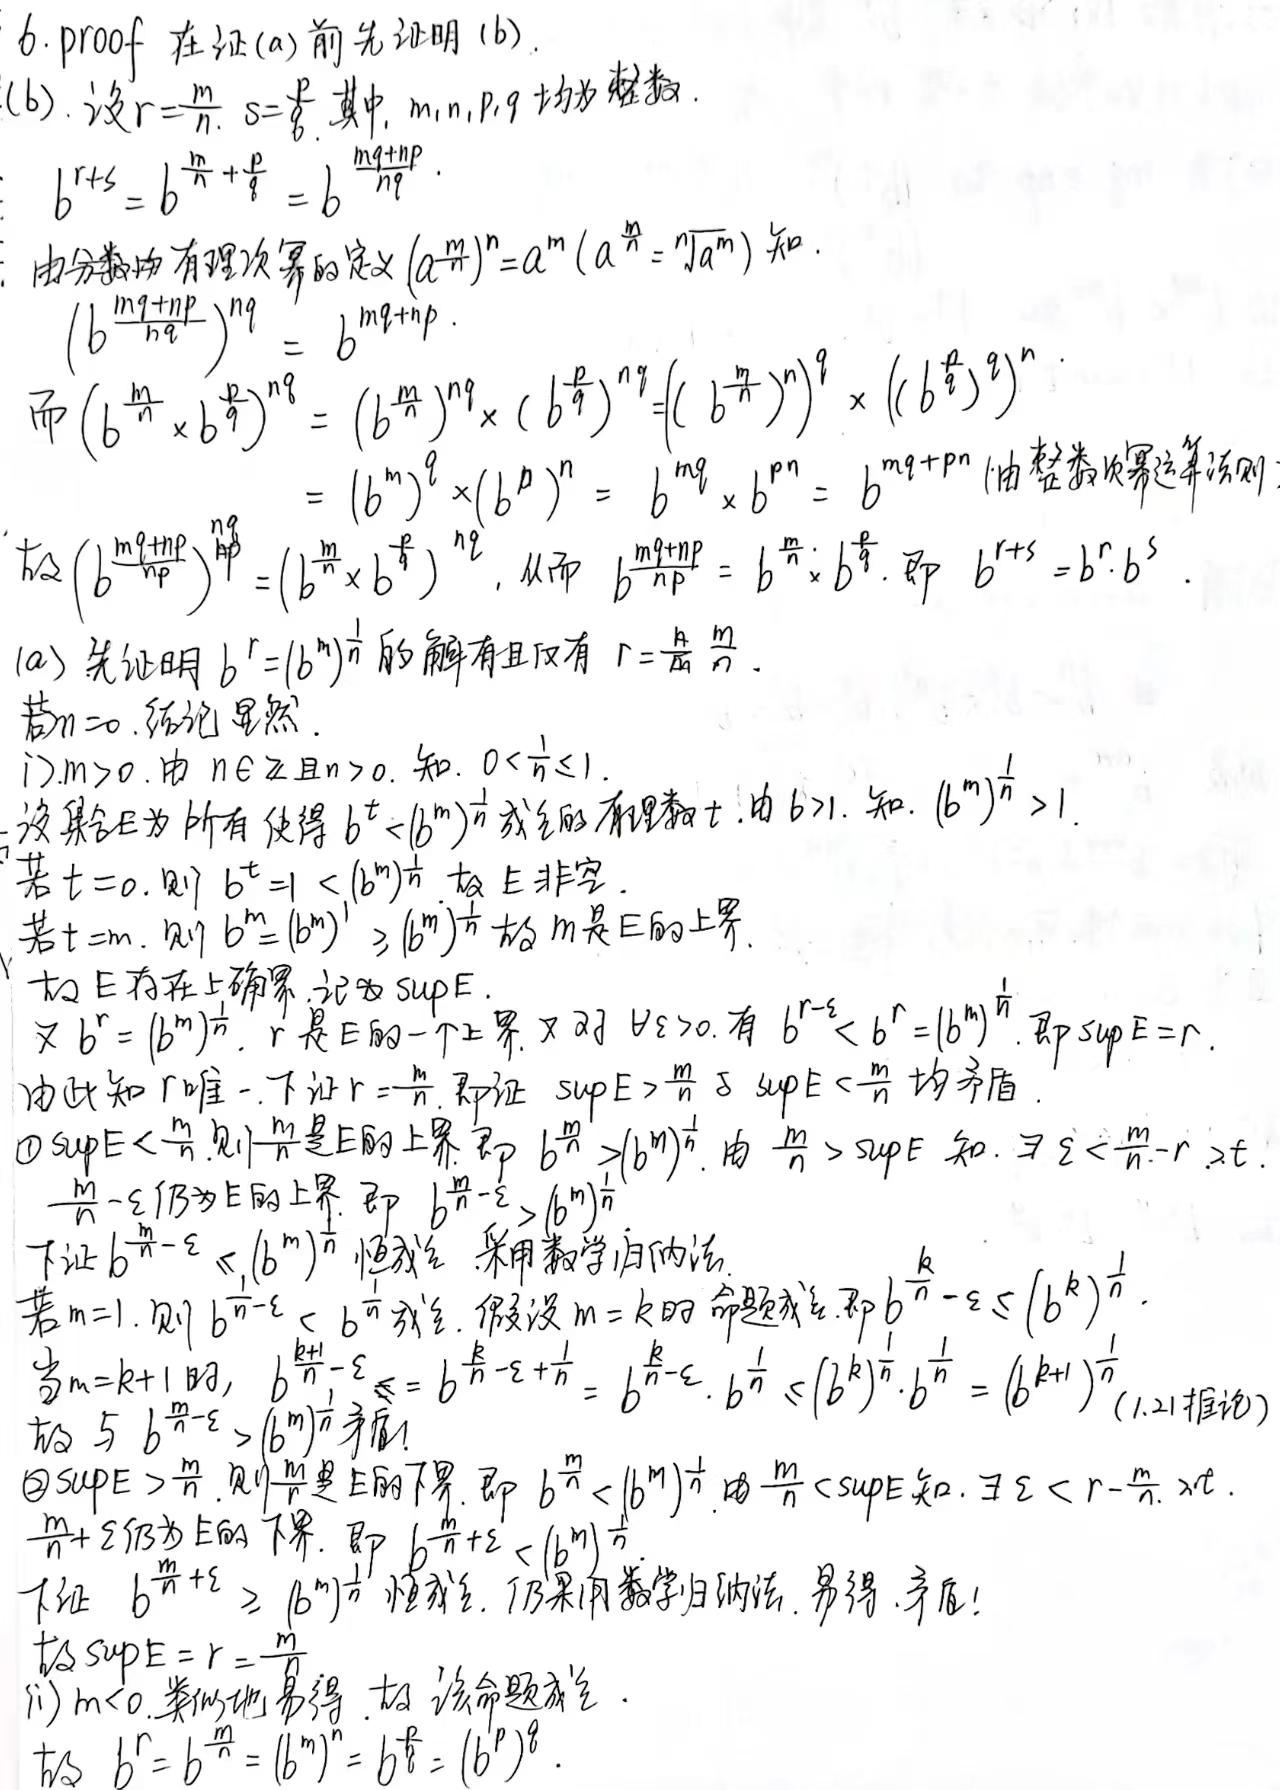 6. proof 在证(a)前先证明(b).
(b). 设r=m/n. s=p/q. 其中, m,n,p,q均为整数.
b^{r+s} = b^{m/n + p/q} = b^{(mq+np)/nq}.
由分数均有理次幂的定义 (a^{m/n})^n = a^m (a^{m/n} = ⁿ√(a^m)) 知.
(b^{(mq+np)/nq})^{nq} = b^{mq+np}.
而 (b^{m/n} × b^{p/q})^{nq} = (b^{m/n})^{nq} × (b^{p/q})^{nq} = ((b^{m/n})^n)^q × ((b^{p/q})^q)^n.
= (b^m)^q × (b^p)^n = b^{mq} × b^{pn} = b^{mq+pn} (由整数次幂运算法则)
故 (b^{(mq+np)/np})^{nq} = (b^{m/n} × b^{p/q})^{nq}, 从而 b^{(mq+np)/np} = b^{m/n} × b^{p/q}. 即 b^{r+s} = b^r · b^s.
(a) 先证明 b^r = (b^m)^{1/n} 的解有且仅有 r = m/n.
若n=0. 结论显然.
i). m>0. 由 n∈Z且n>0. 知. 0<1/n≤1.
设集合E为所有使得 b^t <(b^m)^{1/n} 成立的有理数t. 由b>1. 知. (b^m)^{1/n} >1.
若t=0. 则 b^t=1 <(b^m)^{1/n} 故E非空.
若t=m. 则 b^m=(b^m)^1 ≥(b^m)^{1/n} 故m是E的上界.
故E存在上确界, 记为supE.
又 b^r=(b^m)^{1/n}. r是E的一个上界. 又对 ∀ε>0. 有 b^{r-ε} < b^r = (b^m)^{1/n}. 即supE=r.
由此知r唯一. 下证r=m/n. 即证 supE>m/n 与 supE<m/n 均矛盾.
① supE<m/n. 则m/n是E的上界. 即 b^{m/n} >(b^m)^{1/n}. 由 m/n > supE 知. ∃ε<m/n-r s.t.
m/n-ε仍为E的上界. 即 b^{m/n-ε} >(b^m)^{1/n}
下证b^{m/n-ε} ≤(b^m)^{1/n} 恒成立. 采用数学归纳法.
若m=1. 则 b^{1/n-ε} < b^{1/n} 成立. 假设m=k时命题成立. 即b^{k/n-ε} ≤ (b^k)^{1/n}.
当m=k+1时, b^{(k+1)/n-ε} = b^{k/n-ε+1/n} = b^{k/n-ε}·b^{1/n} ≤(b^k)^{1/n}·b^{1/n} = (b^{k+1})^{1/n} (1.21推论)
故与 b^{m/n-ε} >(b^m)^{1/n} 矛盾!
② supE>m/n. 则m/n是E的下界. 即 b^{m/n} <(b^m)^{1/n}. 由m/n<supE知. ∃ε<r-m/n. s.t.
m/n+ε仍为E的下界. 即 b^{m/n+ε} <(b^m)^{1/n}.
下证 b^{m/n+ε} ≥ (b^m)^{1/n} 恒成立. 仍采用数学归纳法. 易得. 矛盾!
故supE=r=m/n
(ii) m<0. 类似地易得. 故该命题成立.
故 b^r = b^{m/n} = (b^m)^n = b^{p/q} = (b^p)^q.